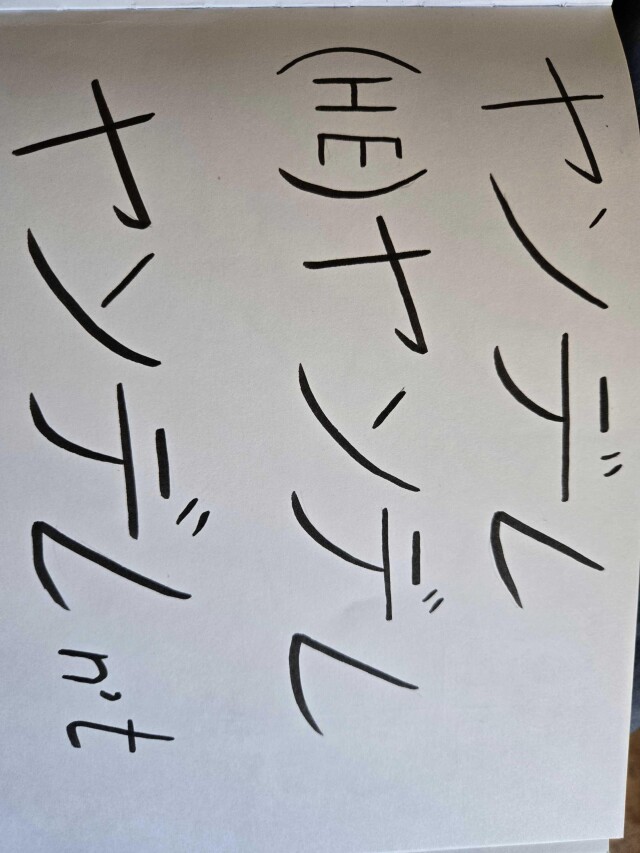 ヤンデレ
(HE)ヤンデレ
ヤンデレn't